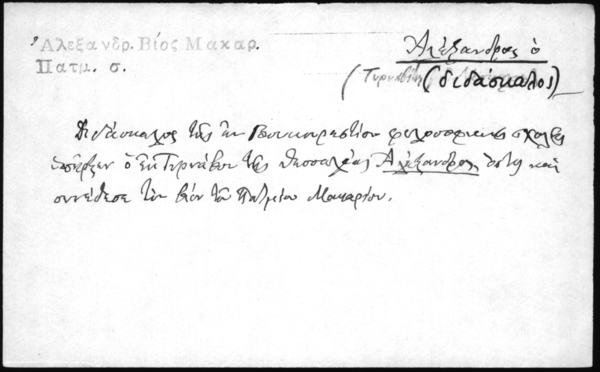 Ἀλεξανδρ. Βίος Μακαρ.
Πατμ. σ.
Ἀλέξανδρος ὁ
(Τυρναβίτης (διδάσκαλος)
Διδάσκαλος τῆς ἐν Βουκουρεστίῳ φιλοσοφικῆς σχολῆς
ὑπῆρξεν ὁ ἐκ Τυρνάβου τῆς Θεσσαλίας Ἀλέξανδρος, ὅστις καὶ
συνέθεσε τὸν βίον τοῦ Πατμίου Μακαρίου.